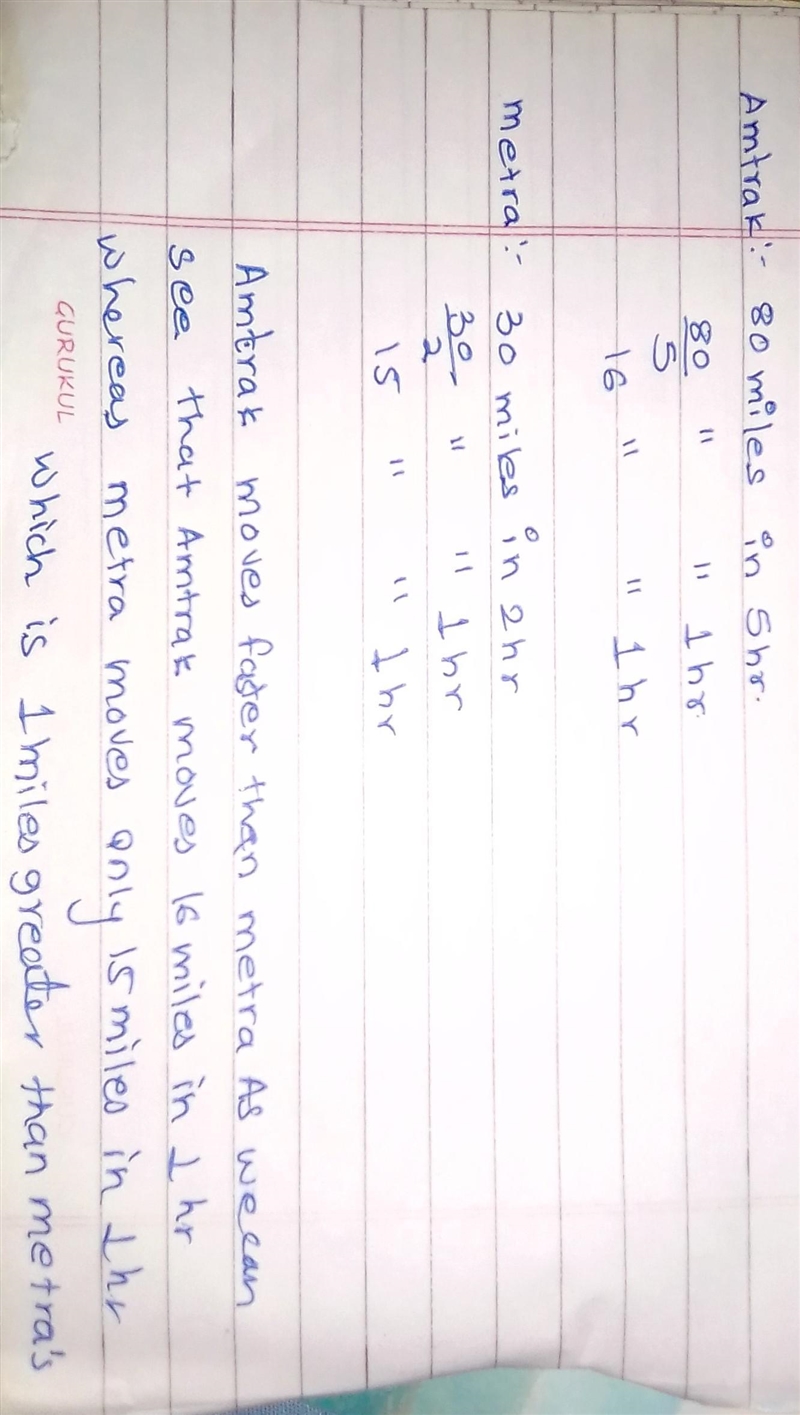 Amtrak:- 80 miles in 5hr.
80/5 " " 1hr.
16 " " 1hr
metra:- 30 miles in 2hr
30/2 " " 1hr
15 " " 1hr
Amtrak moves faster than metra As we can
see that Amtrak moves 16 miles in 1hr
whereas metra moves only 15 miles in 1hr
GURUKUL
which is 1 miles greater than metra's